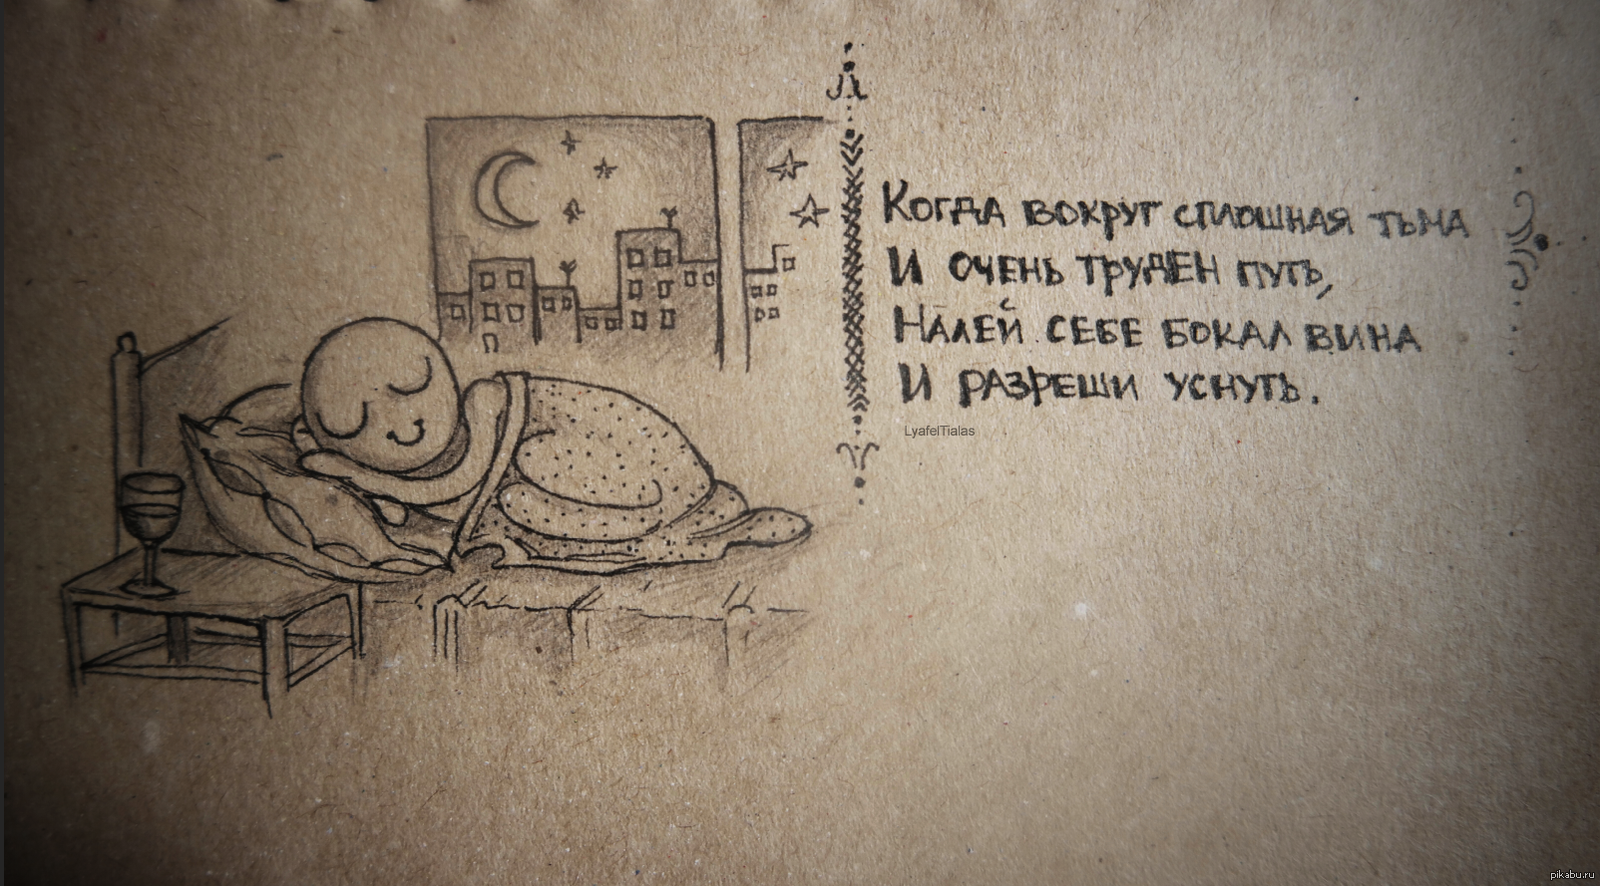 Когда вокруг сплошная тьма
И очень труден путь,
Налей себе бокал вина
И разреши уснуть.
LyafelTialas
pikabu.ru